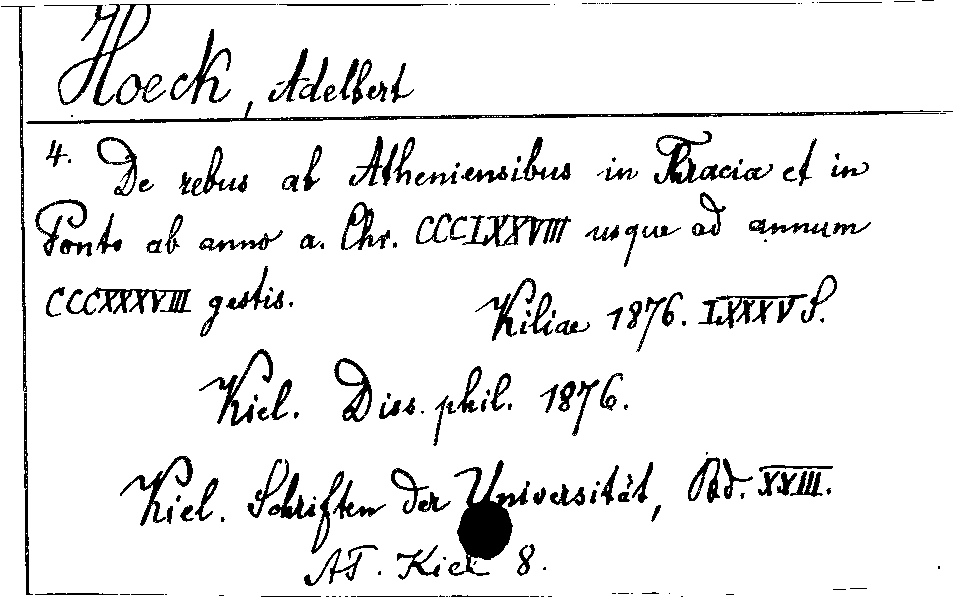 Hoeck, Adelbert
4. De rebus ab Atheniensibus in Thracia et in
Ponto ab anno a. Chr. CCCLXXVIII usque ad annum
CCCXXXVIII gestis.
Kiliae 1876. LXXXV S.
Kiel. Diss. phil. 1876.
Kiel. Schriften der Universität, Bd. XXIII.
AT. Kiel 8.